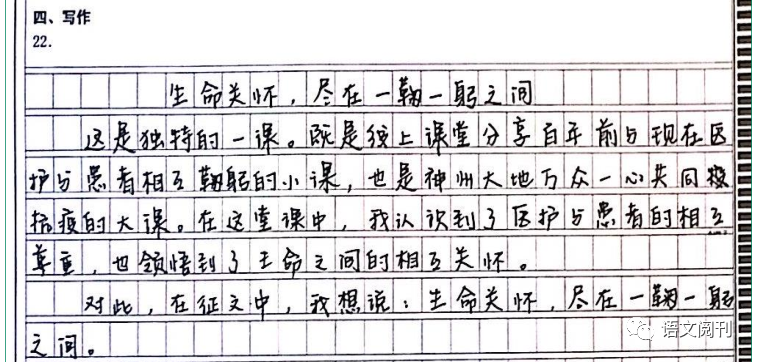 四、写作
22.
生命关怀，尽在一鞠一躬之间
这是独特的一课。既是线上课堂分享百年前与现在医
护与患者相互鞠躬的小课，也是神州大地万众一心共同
抗疫的大课。在这堂课中，我认识到了医护与患者的相互
尊重，也领悟到了生命之间的相互关怀。
对此，在征文中，我想说：生命关怀，尽在一鞠一躬
之间。
语文阅刊